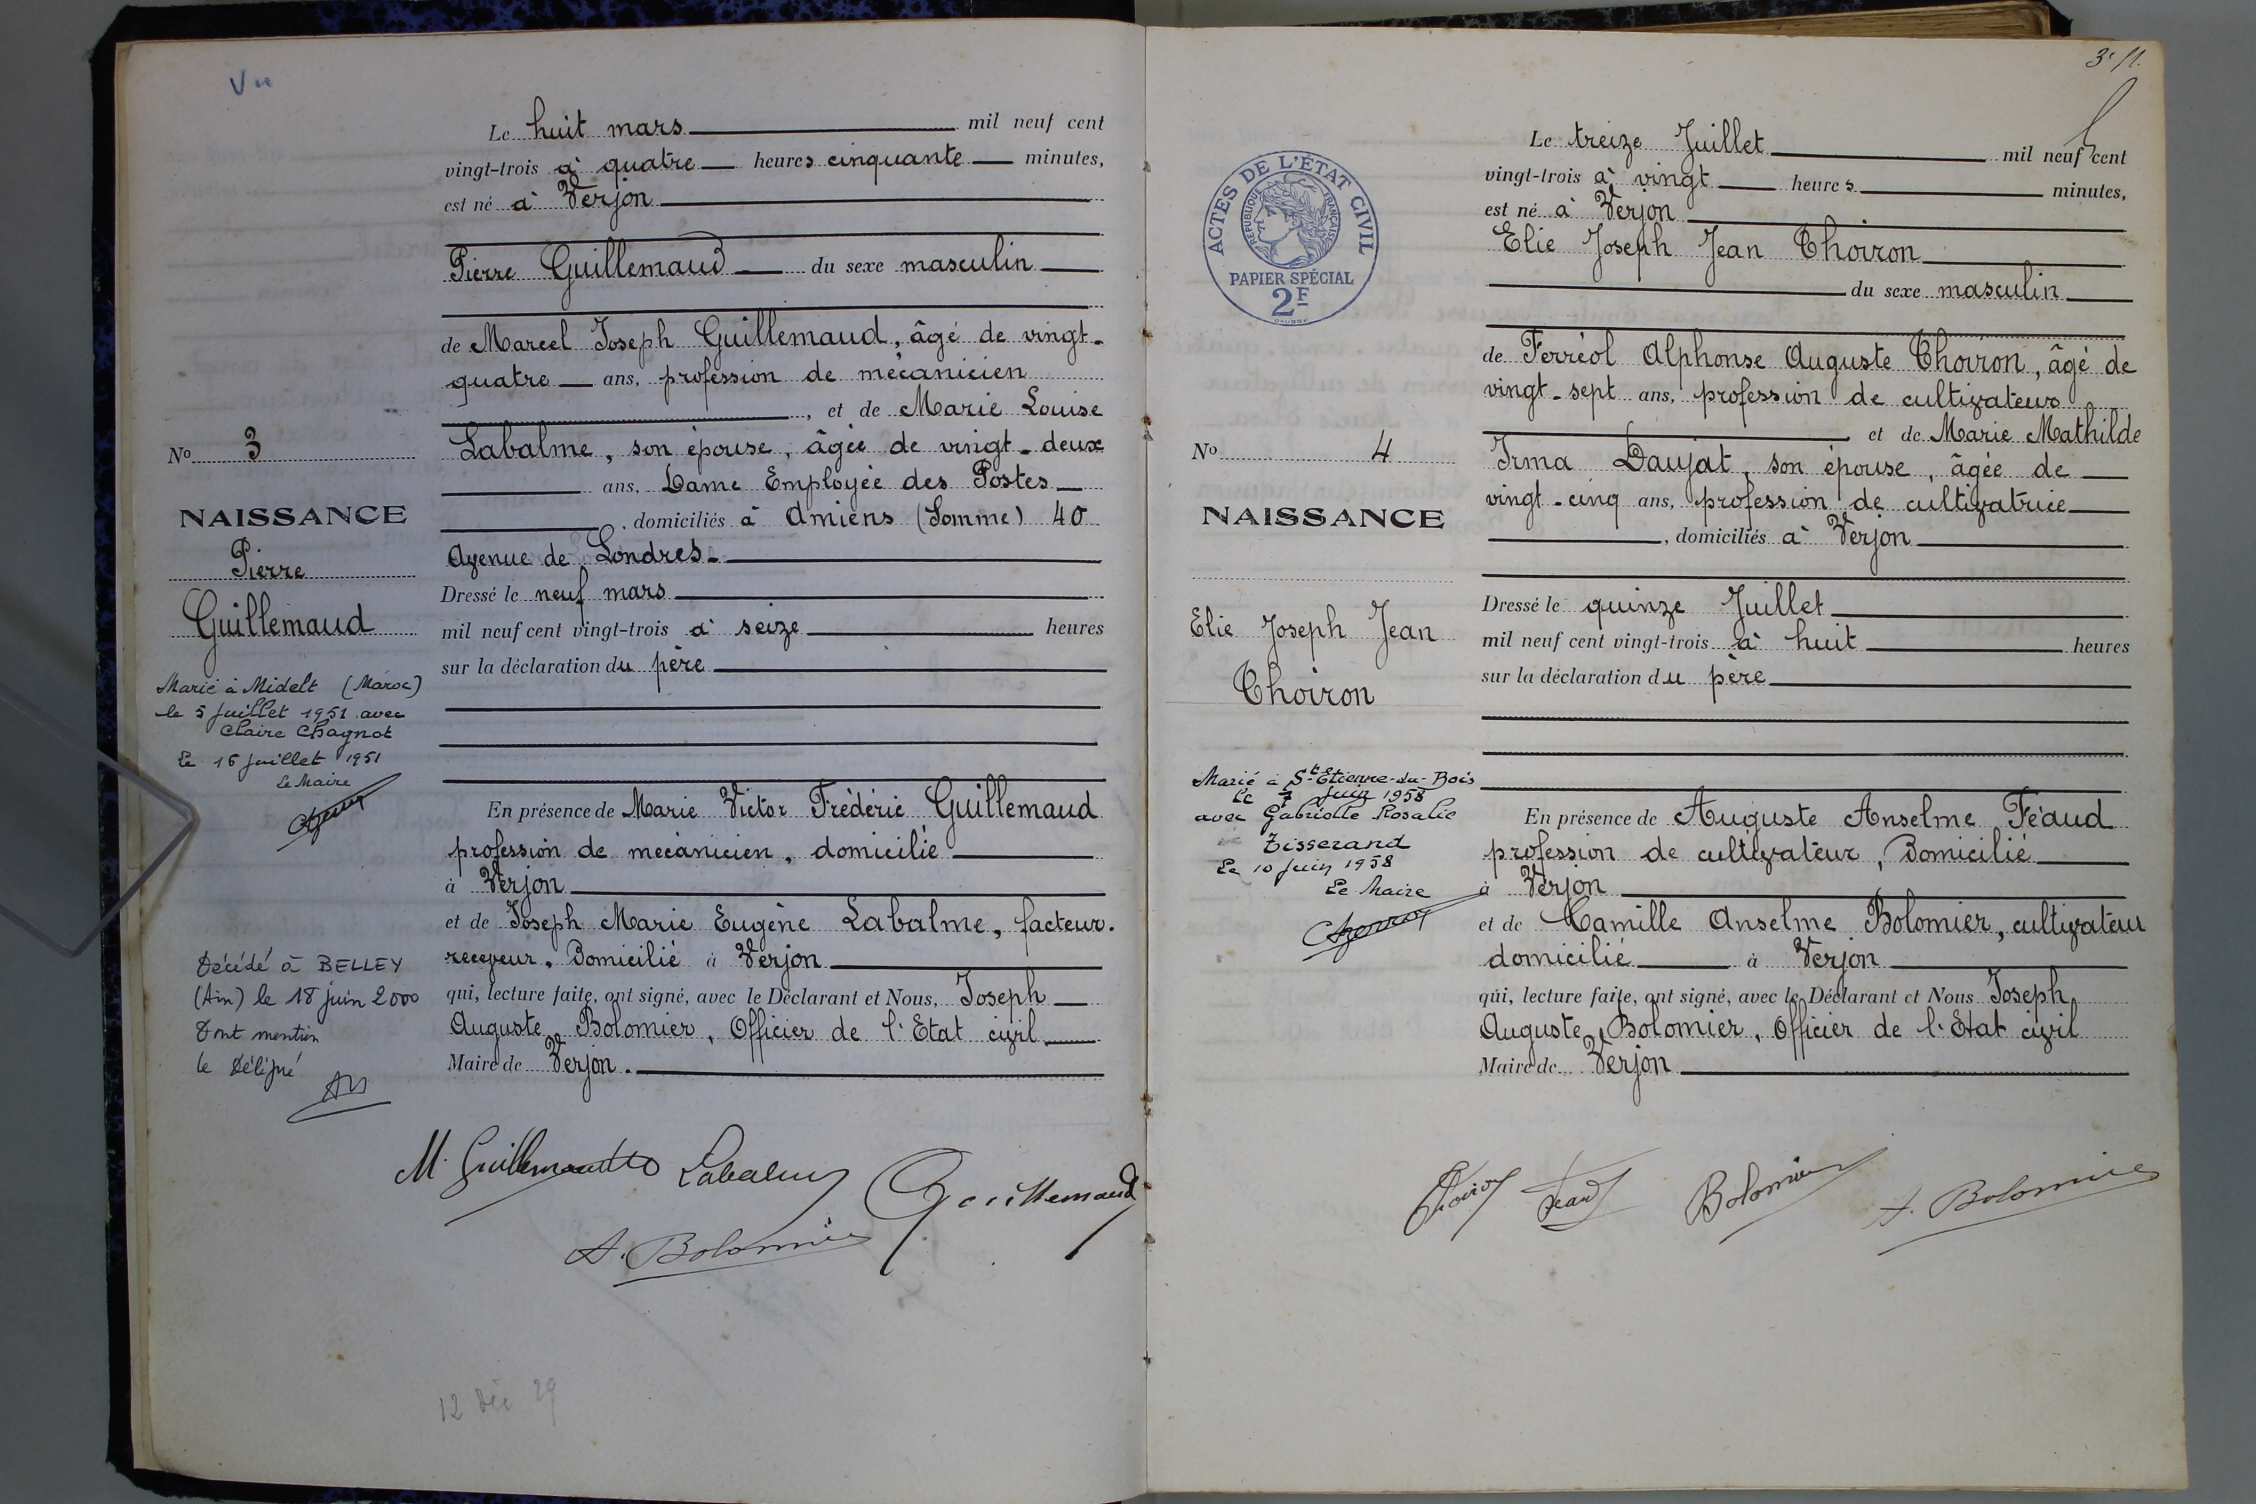 Vu
Le huit mars mil neuf cent
vingt-trois à quatre heures cinquante minutes,
est né à Verjon
Pierre Guillemaud du sexe masculin
de Marcel Joseph Guillemaud, âgé de vingt-
quatre ans, profession de mécanicien
, et de Marie Louise
Labalme, son épouse, âgée de vingt-deux
ans, Dame Employée des Postes
, domiciliés à Amiens (Somme) 40
Avenue de Londres.
Dressé le neuf mars
mil neuf cent vingt-trois à seize heures
sur la déclaration du père
En présence de Marie Victor Frédéric Guillemaud
profession de mécanicien, domicilié
à Verjon
et de Joseph Marie Eugène Labalme, facteur.
receveur, Domicilié à Verjon
qui, lecture faite, ont signé, avec le Déclarant et Nous, Joseph
Auguste Bolomier, Officier de l'Etat civil
Maire de Verjon.
No 3
NAISSANCE
Pierre
Guillemaud
Marié à Midelt (Maroc)
le 5 Juillet 1951 avec
Claire Chagnot
Le 16 Juillet 1951
Le Maire
Décédé à BELLEY
(Ain) le 18 juin 2000
Dont mention
le Délégué
M. Guillemaud Labalme Guillemaud
A. Bolomier
12 Déc 29
3e fl.
ACTES DE L'ÉTAT CIVIL
RÉPUBLIQUE FRANÇAISE
PAPIER SPÉCIAL
2F
Le treize Juillet mil neuf cent
vingt-trois à vingt heures minutes,
est né à Verjon
Elie Joseph Jean Thoiron
du sexe masculin
de Ferréol Alphonse Auguste Thoiron, âgé de
vingt-sept ans, profession de cultivateur
et de Marie Mathilde
Irma Daujat, son épouse, âgée de
vingt-cinq ans, profession de cultivatrice
, domiciliés à Verjon
Dressé le quinze Juillet
mil neuf cent vingt-trois à huit heures
sur la déclaration du père
En présence de Auguste Anselme Féaud
profession de cultivateur, Domicilié
à Verjon
et de Camille Anselme Bolomier, cultivateur
domicilié à Verjon
qui, lecture faite, ont signé, avec le Déclarant et Nous Joseph
Auguste Bolomier, Officier de l'Etat civil
Maire de Verjon
No 4
NAISSANCE
Elie Joseph Jean
Thoiron
Marié à St Etienne-du-Bois
le 7 Juin 1958
avec Gabrielle Rosalie
Tisserand
Le 10 Juin 1958
Le Maire
Thoiron Féaud Bolomier A. Bolomier